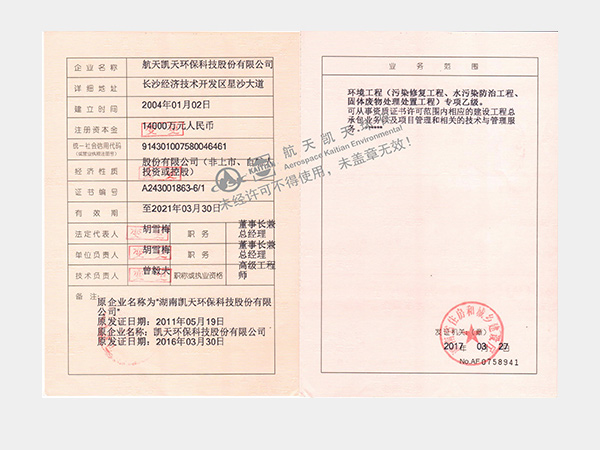 企业名称 航天凯天环保科技股份有限公司
详细地址 长沙经济技术开发区星沙大道
建立时间 2004年01月02日
注册资本金 14000万元人民币
统一社会信用代码 914301007580046461
(或营业执照注册号)
经济性质 股份有限公司(非上市、自
投资或控股)
证书编号 A243001863-6/1
有效期 至2021年03月30日
法定代表人 胡雪梅 职务 董事长兼
总经理
单位负责人 胡雪梅 职务 董事长兼
总经理
技术负责人 曾毅夫 职称或执业资格 高级工程
师
备注
原企业名称为"湖南凯天环保科技股份有限
公司"
原发证日期：2011年05月19日
原企业名称：凯天环保科技股份有限公司
原发证日期：2016年03月30日
业务范围
环境工程（污染修复工程、水污染防治工程、
固体废物处理处置工程）专项乙级。
可从事资质证书许可范围内相应的建设工程总
承包业务以及项目管理和相关的技术与管理服
务。*******
航天凯天
KAITIAN
Aerospace Kaitian Environmental
未经许可不得使用，未盖章无效！
住房和城乡建设
发证机关：(章)
2017年03月27日
No.AF0758941